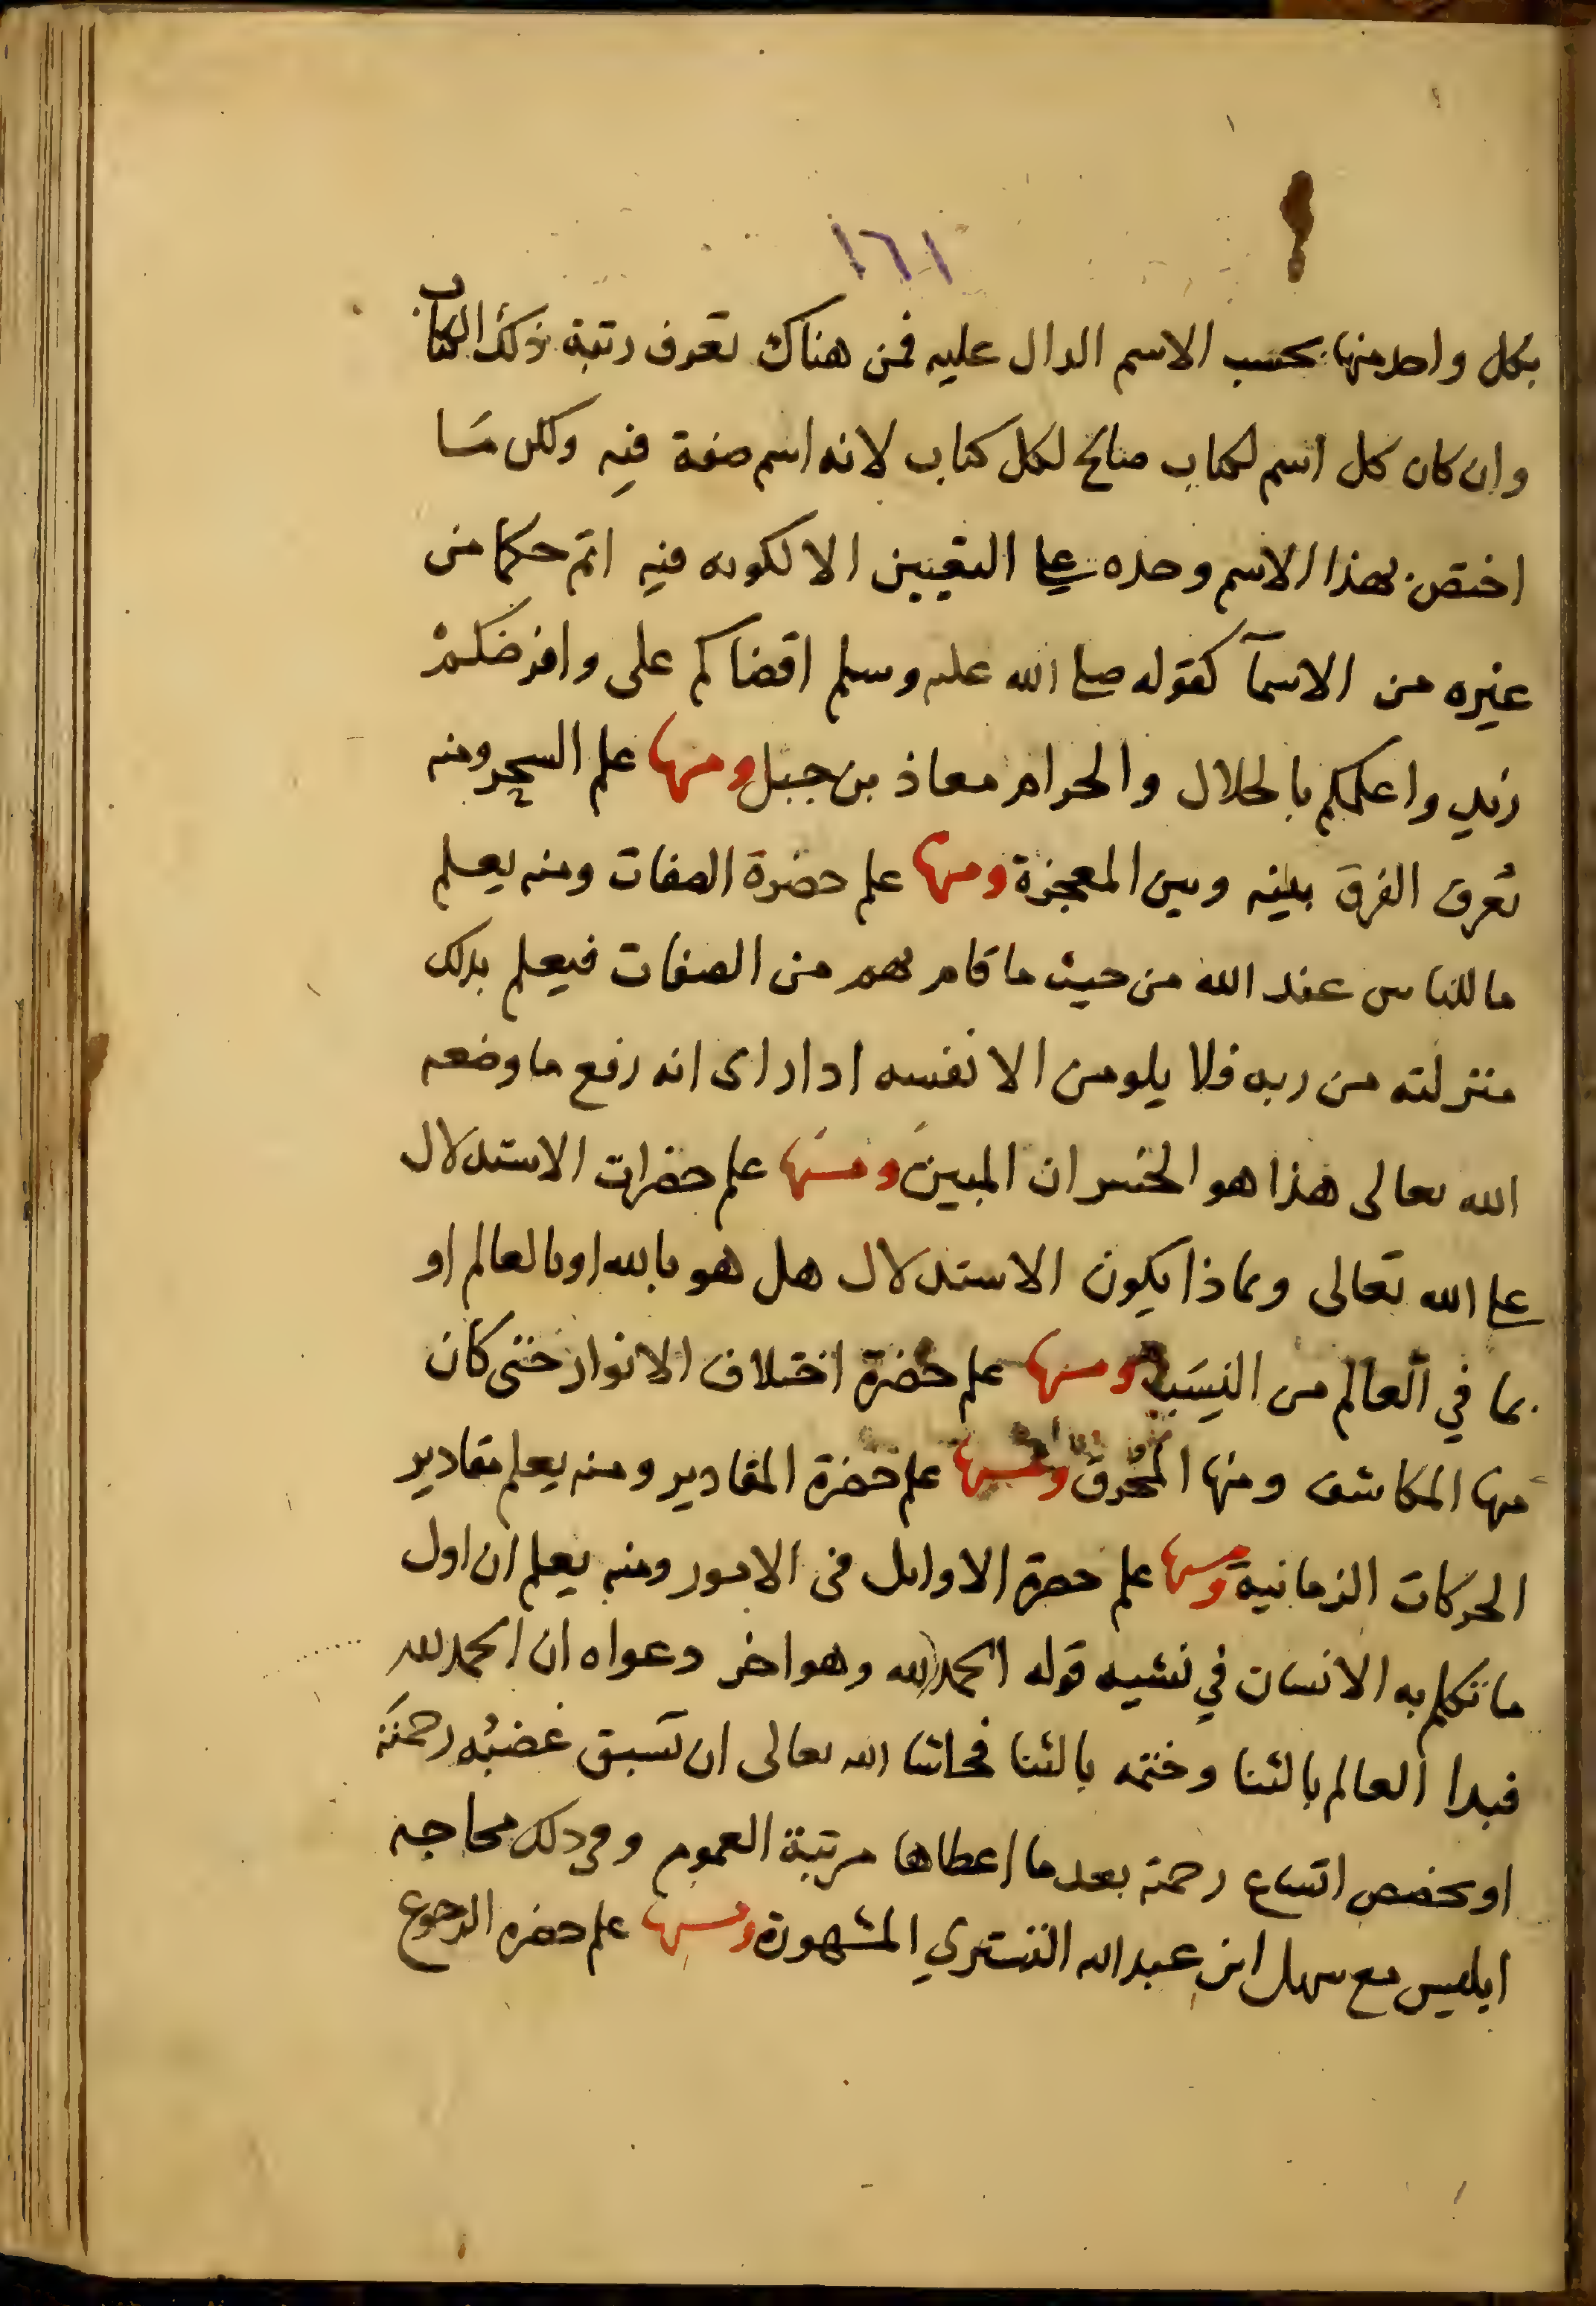 ١٦١
بكل واحد منها بحسب الاسم الدال عليه فمن هناك تعرف رتبة ذلك الكتاب
وان كان كل اسم لكتاب صالح لكل كتاب لانه اسم صفة فيه ولكن ما
اختص بهذا الاسم وحده على التعيين الا لكونه فيه اتم حكما من
غيره من الاسمآ كقوله صلى الله عليه وسلم اقضاكم على وافرضكم
زيد واعلمكم بالحلال والحرام معاذ بن جبل ومنها علم السحر ومنه
تعرف الفرق بينه وبين المعجزة ومنها علم حضرة الصفات ومنه يعلم
ما للناس عند الله من حيث ما قام بهم من الصفات فيعلم بذلك
منزلته من ربه فلا يلومن الا نفسه اذا راى انه رفع ما وضعه
الله تعالى هذا هو الخسران المبين ومنها علم حضرات الاستدلال
على الله تعالى وبماذا يكون الاستدلال هل هو بالله او بالعالم او
بما في العالم من النِسَب ومنها علم حضرة اختلاف الانوار حتى كان
منها المكاشف ومنها المحرق ومنها علم حضرة المقادير ومنه يعلم مقادير
الحركات الزمانية ومنها علم حضرة الاوايل فى الامور ومنه يعلم ان اول
ما تكلم به الانسان في نشيه قوله الحمد لله وهو اخر دعواه ان الحمد لله
فبدا العالم بالثنا وختمه بالثنا فحاشا الله تعالى ان تسبق غضبُه رحمته
او يخصص اتساع رحمة بعد ما اعطاها مرتبة العموم وفى ذلك محاجه
ابليس مع سهل ابن عبد الله التستري المشهورة ومنها علم حضره الرجوع